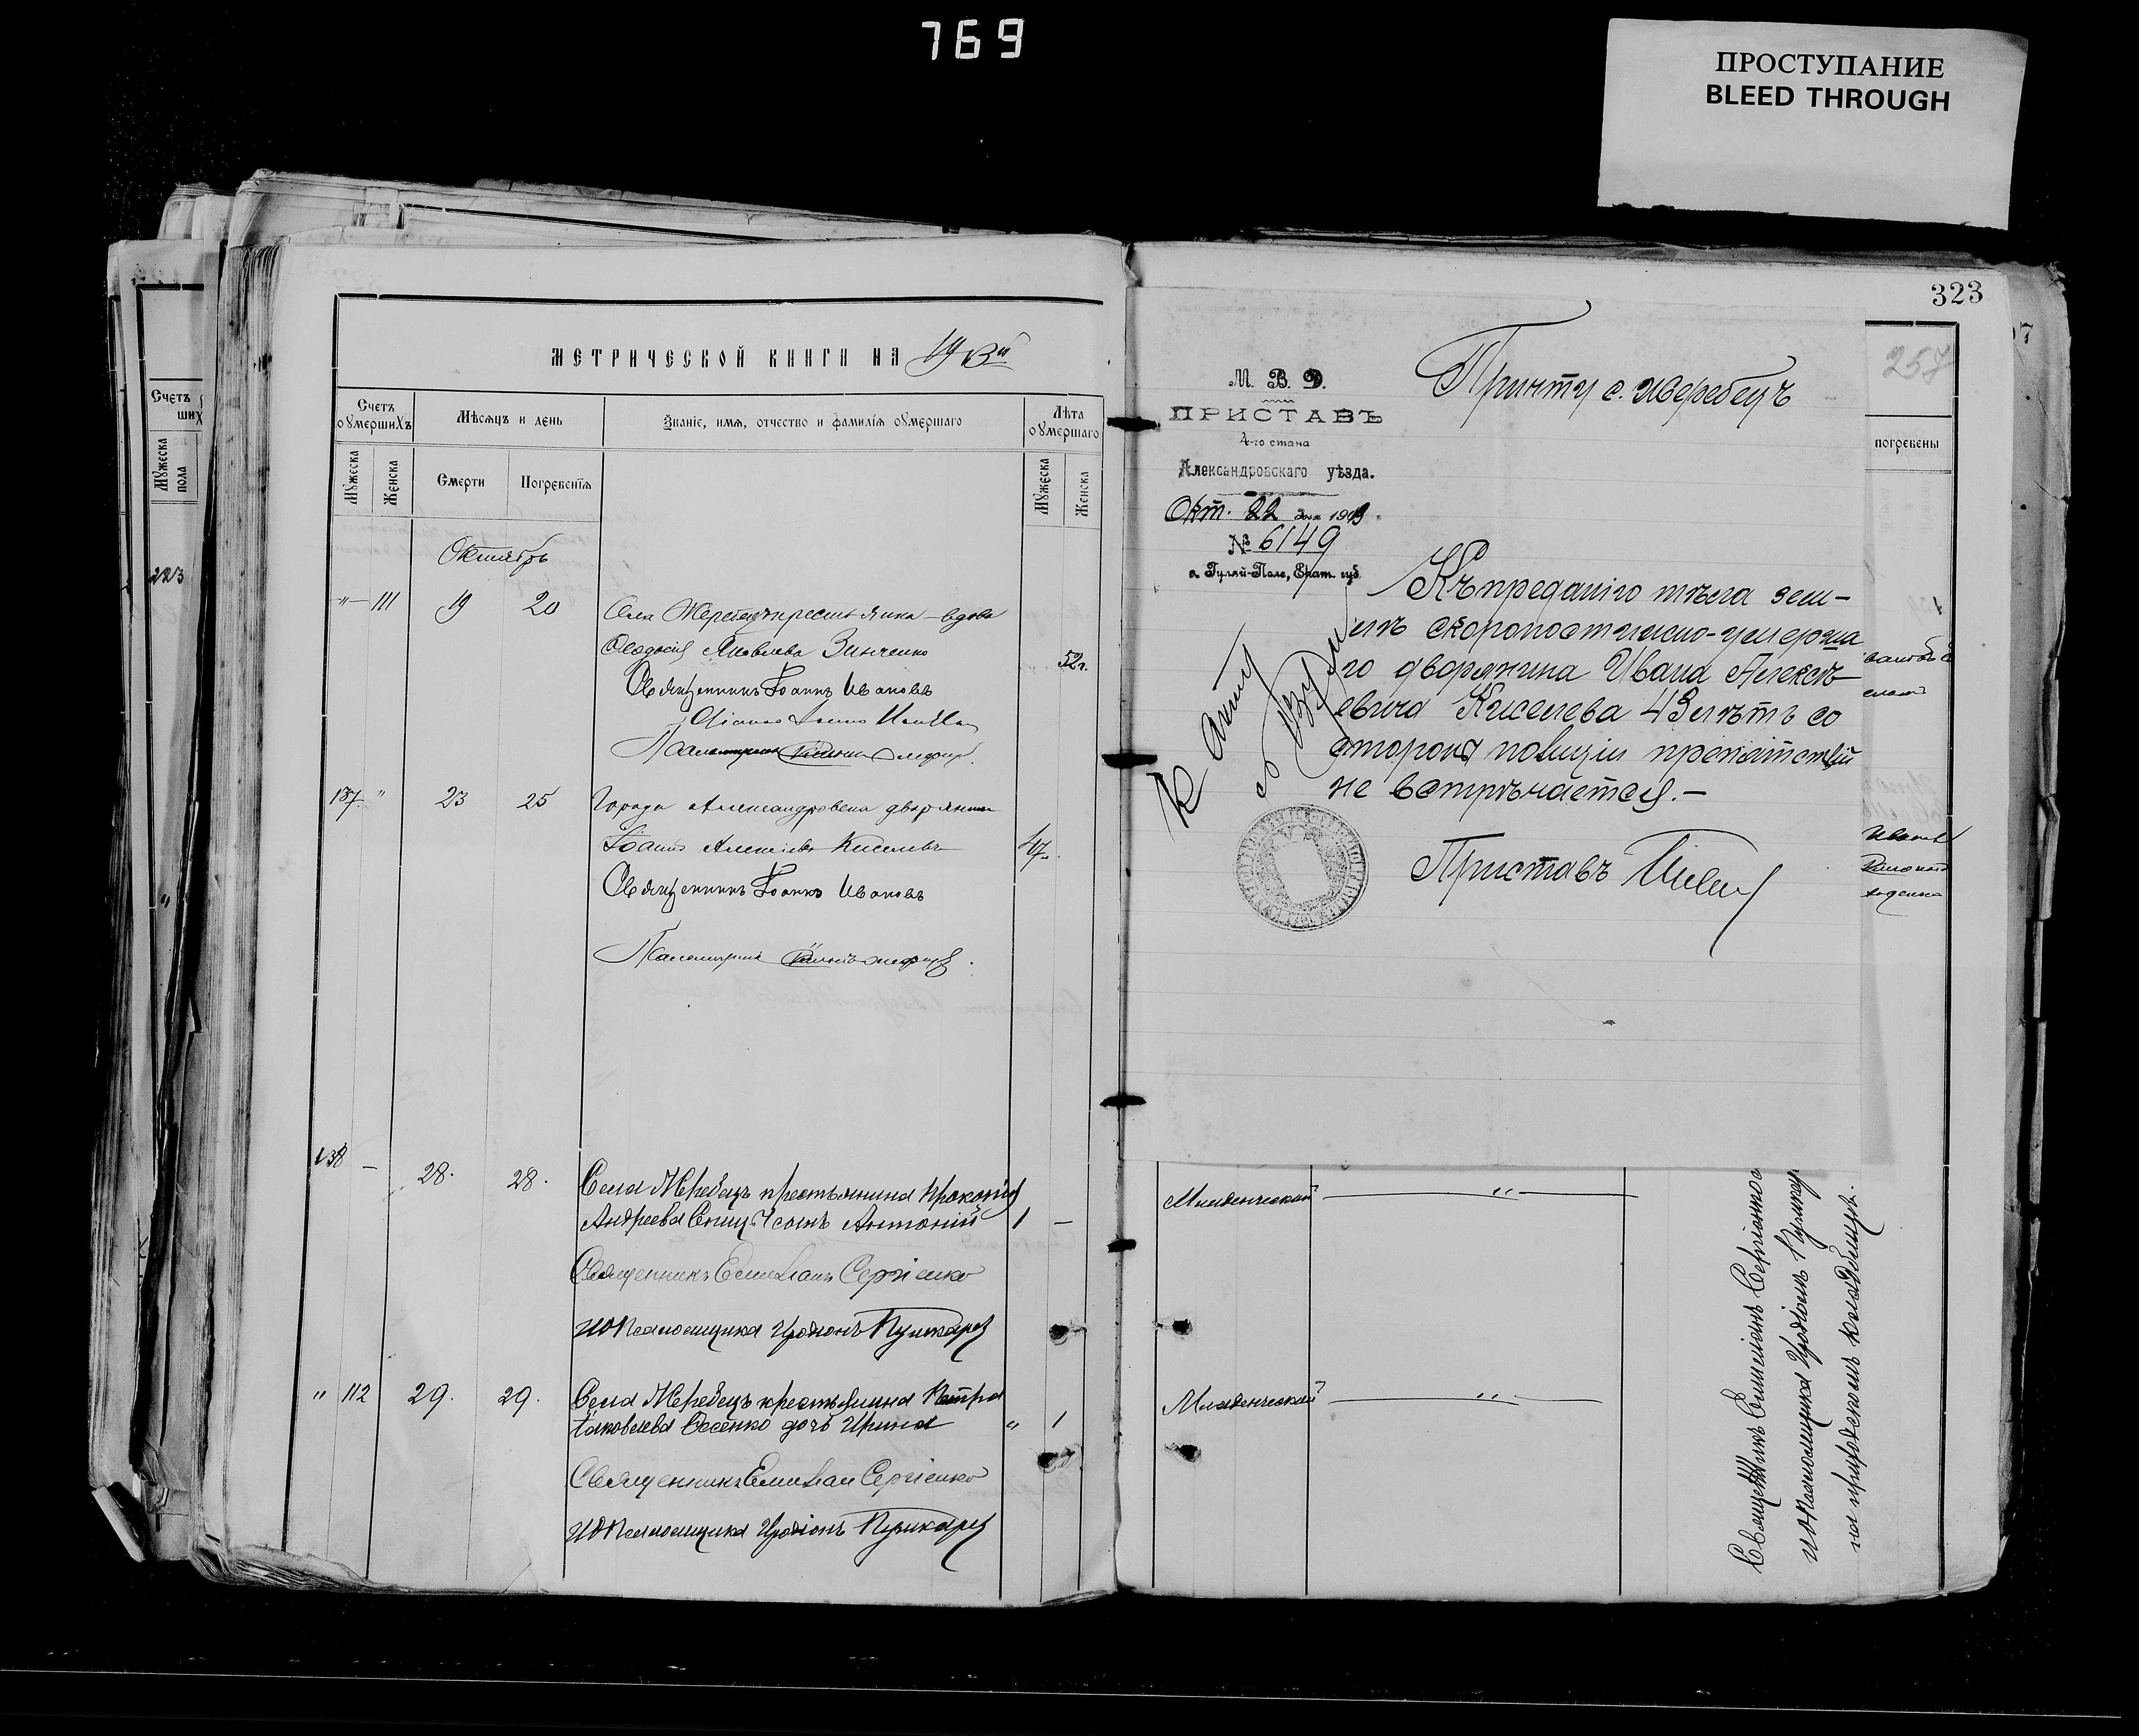 769
ПРОСТУПАНИЕ
BLEED THROUGH
Счетъ
ших
Мужеска пола
223
МЕТРИЧЕСКОЙ КНИГИ НА 1913й
Счетъ умершихъ
Мѣсяцъ и день
Званіе, имя, отчество и фамилія умершаго
Лѣта умершаго
Мужеска
Женска
Смерти
Погребенія
Мужеска
Женска
Октябрь
"— 111 19 20 Села Жеребецъ крестьянка – вдова
Ѳеодосія Яковлева Зинченко 52г.
Священникъ Іоаннъ Ивановъ
137. " 23 25 Города Александровска дворянинъ
Іоаннъ Алексіевъ Киселевъ 47
Священникъ Іоаннъ Ивановъ
Псаломщикъ
138 — 28. 28. Села Жеребецъ крестьянина Прокопія
Андреева сынъ Антоній 1 —
Священникъ Емиліанъ Сергіенко
ИО Псаломщика Иродіонъ Пушкарь
" 112 29. 29. Села Жеребецъ крестьянина Петра
Яковлева дочь Ирина " 1
Священникъ Емиліан Сергіенко
ИО Псаломщика Иродіонъ Пушкарь
323
257
погребены
М. В. Д.
ПРИСТАВЪ
4-го стана
Александровскаго уѣзда.
Окт. 22 дня 1913.
№ 6149
с. Гуляй-Поле, Екат. губ.
Причту с. Жеребецъ
Къ преданію тѣла зем-
лѣ скоропостижно-умерша
го дворянина Ивана Алексѣ-
евича Киселева 43 лѣтъ со
стороны полиціи препятствій
не встрѣчается.–
Приставъ
К акту
Младенческий — " —
Младенческий — " —
Священникъ Емиліанъ Сергіенко
ИО Псаломщика Иродіонъ Пушкарь
на приходскомъ кладбищѣ.